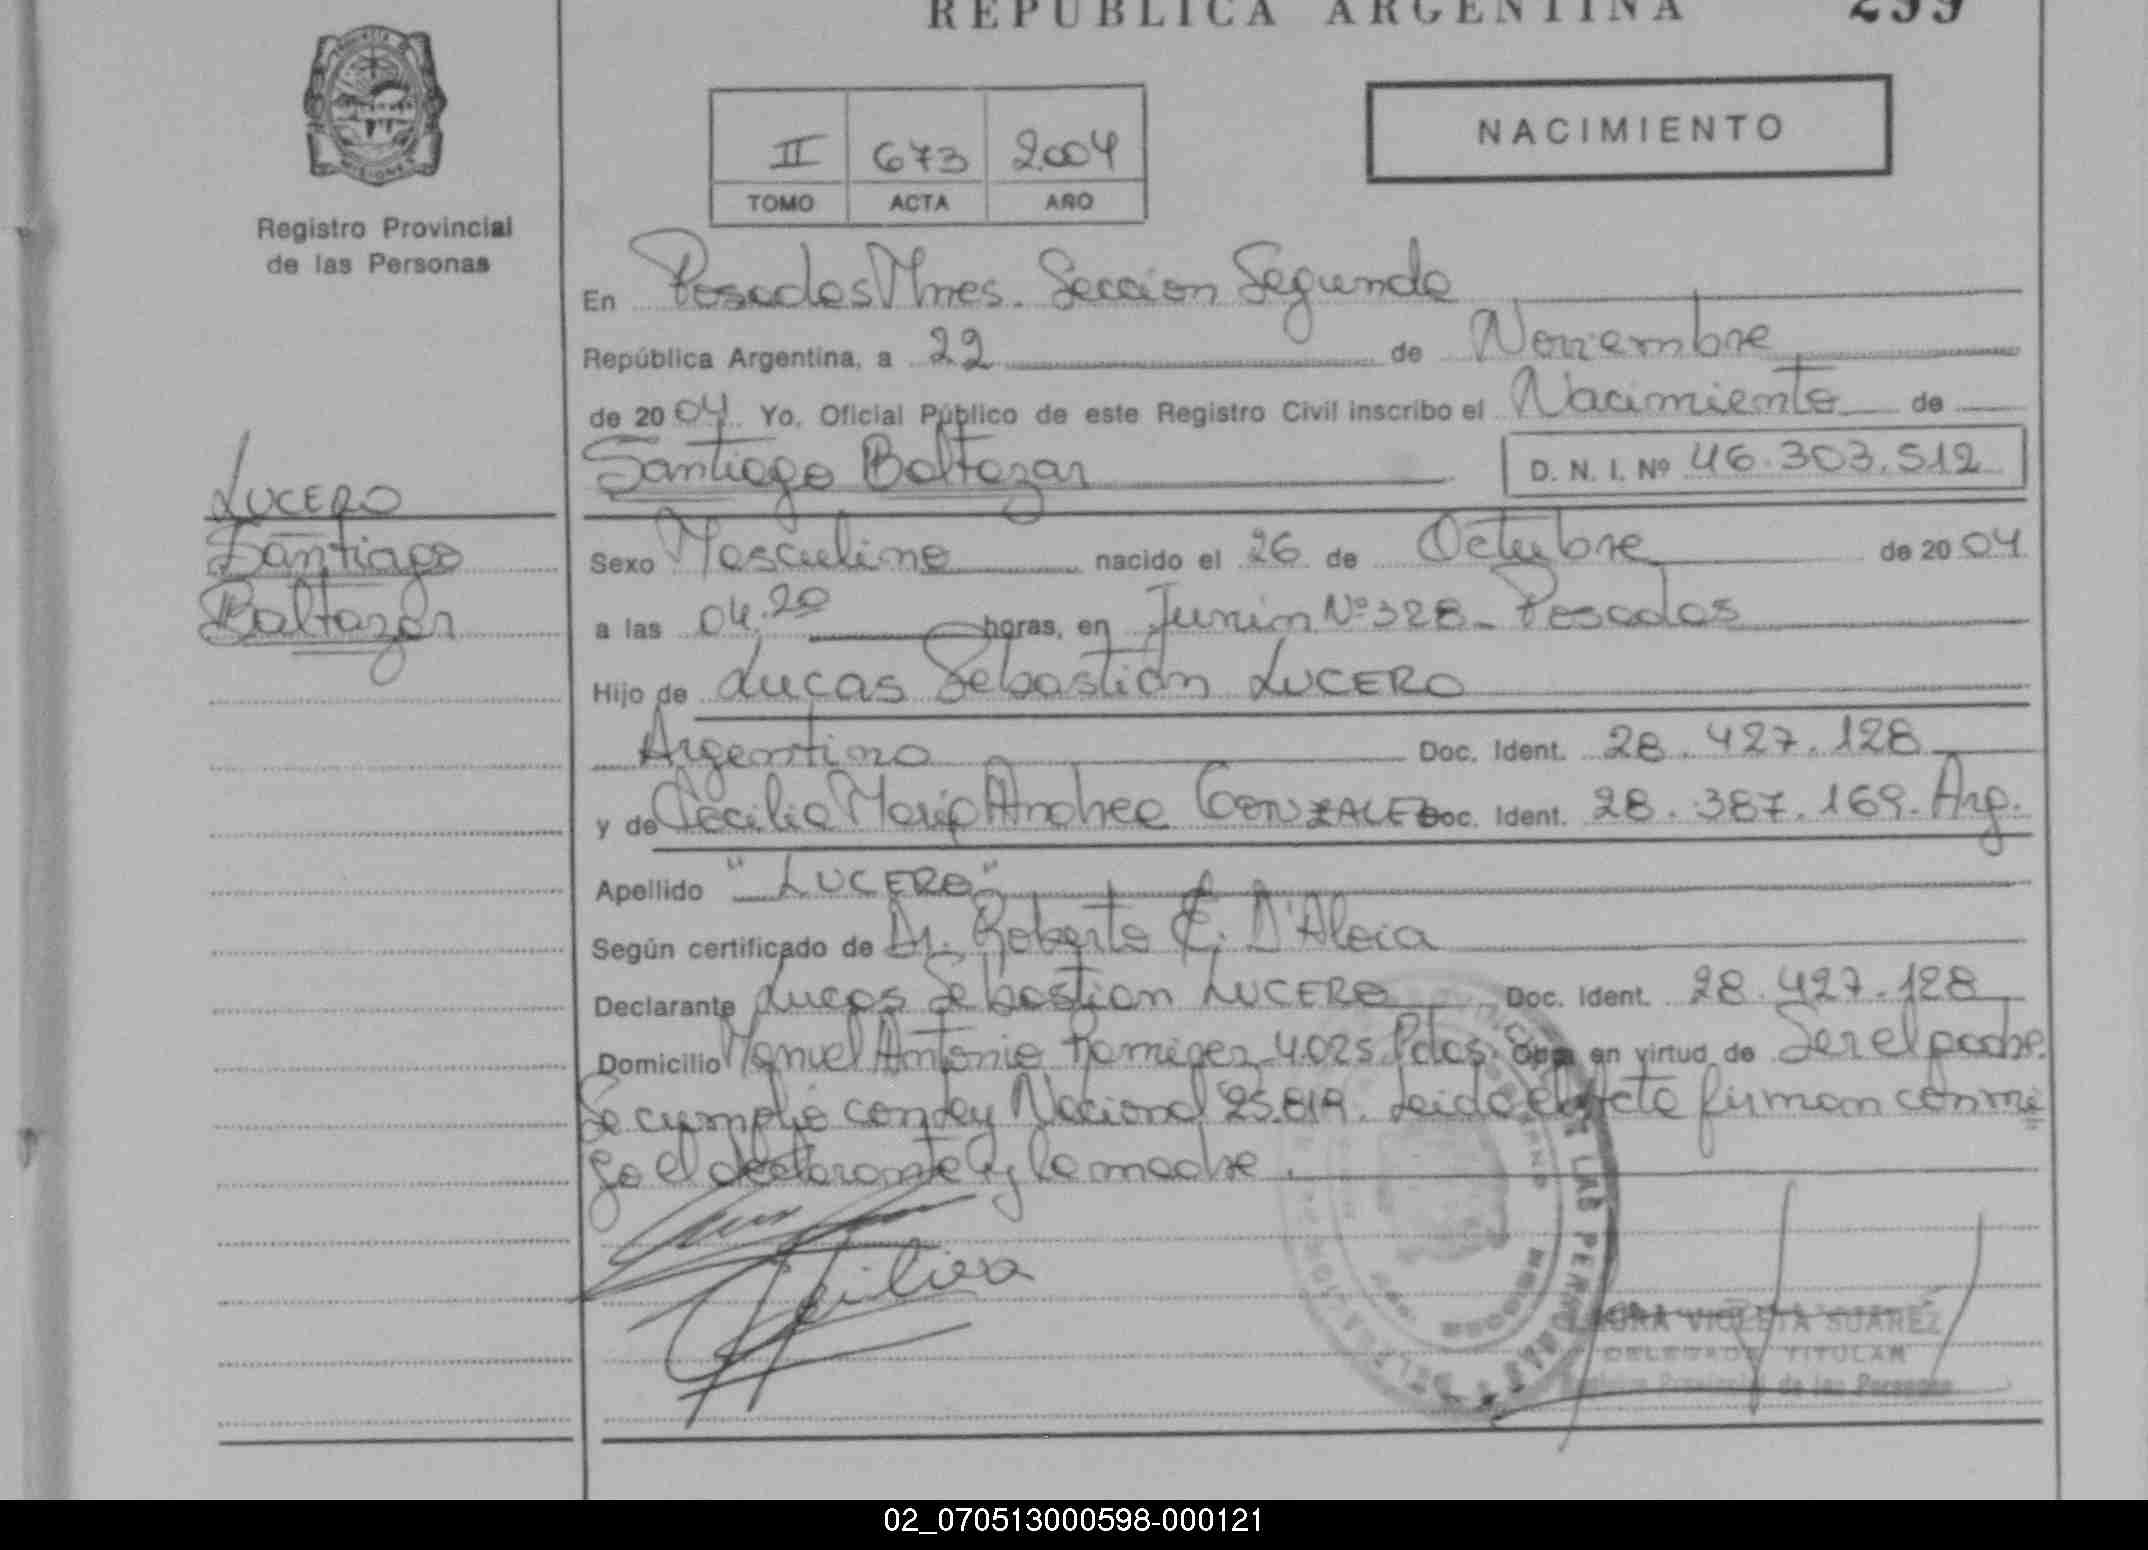 REPUBLICA ARGENTINA 299
NACIMIENTO
II 673 2004
TOMO ACTA AÑO
Registro Provincial
de las Personas
En Posadas Mnes. Seccion Segunda
República Argentina, a 22 de Noviembre
de 2004 Yo, Oficial Público de este Registro Civil inscribo el Nacimiento de
Santiago Baltazar D. N. I. Nº 46.303.512
LUCERO
Santiago
Baltazar
Sexo Masculino nacido el 26 de Octubre de 2004
a las 04.20 horas, en Junin Nº 328 - Posadas
Hijo de Lucas Sebastián LUCERO
Argentino Doc. Ident. 28.427.128
y de Cecilia María Andrea GONZALEZ Doc. Ident. 28.387.169. Arg.
Apellido "LUCERO"
Según certificado de Dr. Roberto E. D'Aloia
Declarante Lucas Sebastian LUCERO Doc. Ident. 28.427.128
Domicilio Manuel Antonio Ramirez 4.025. Pdas. Obra en virtud de Ser el padre.
Se cumplió con Ley Nacional 25.819. Leida el Acta firman conmi
go el declarante y la madre.
VIOLETA SUAREZ
DELEGADA TITULAR
Registro Provincial de las Personas
02_070513000598-000121